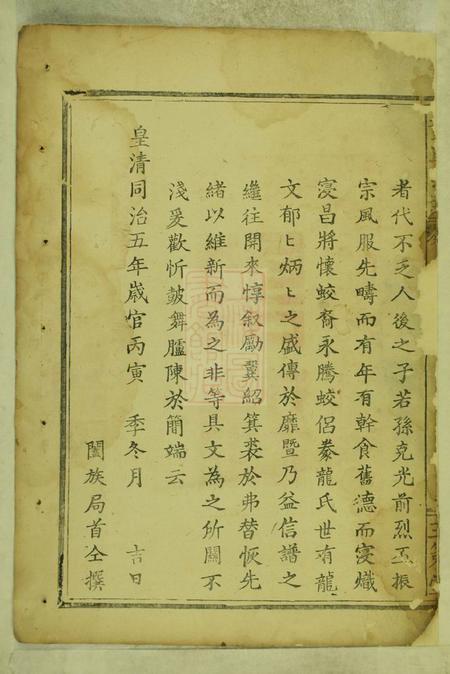 者代不乏人後之子若孫克光前烈丕振
宗風服先疇而有年有幹食舊德而寖熾
寖昌將懷蛟裔永騰蛟侣豢龍氏世有龍
文郁〻炳〻之盛傳於靡暨乃益信譜之
繼往開來惇叙勵翼紹箕裘於弗替恢先
緒以維新而為之非等具文為之所關不
淺爰歡忻皷舞臚陳於簡端云
皇清同治五年嵗官丙寅 季冬月 吉日
闔族局首仝撰